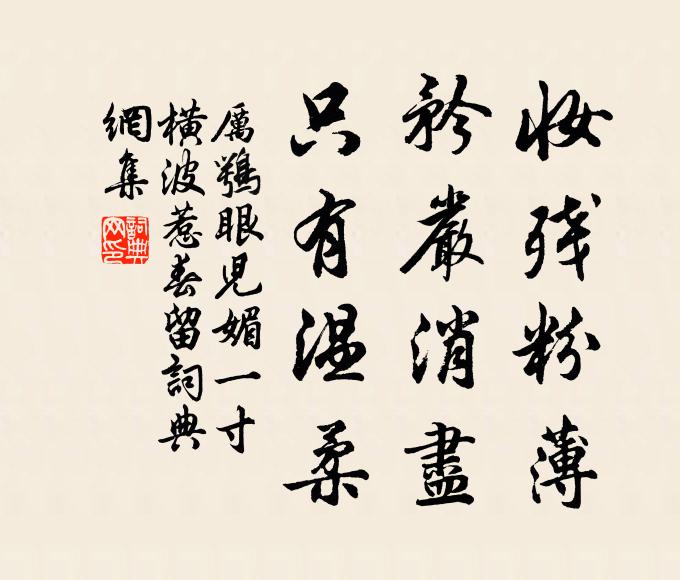 妆残粉薄
矜嚴消盡
只有温柔
厲鶚眼兒媚一寸
橫波惹春留詞典
網集
詞典網印